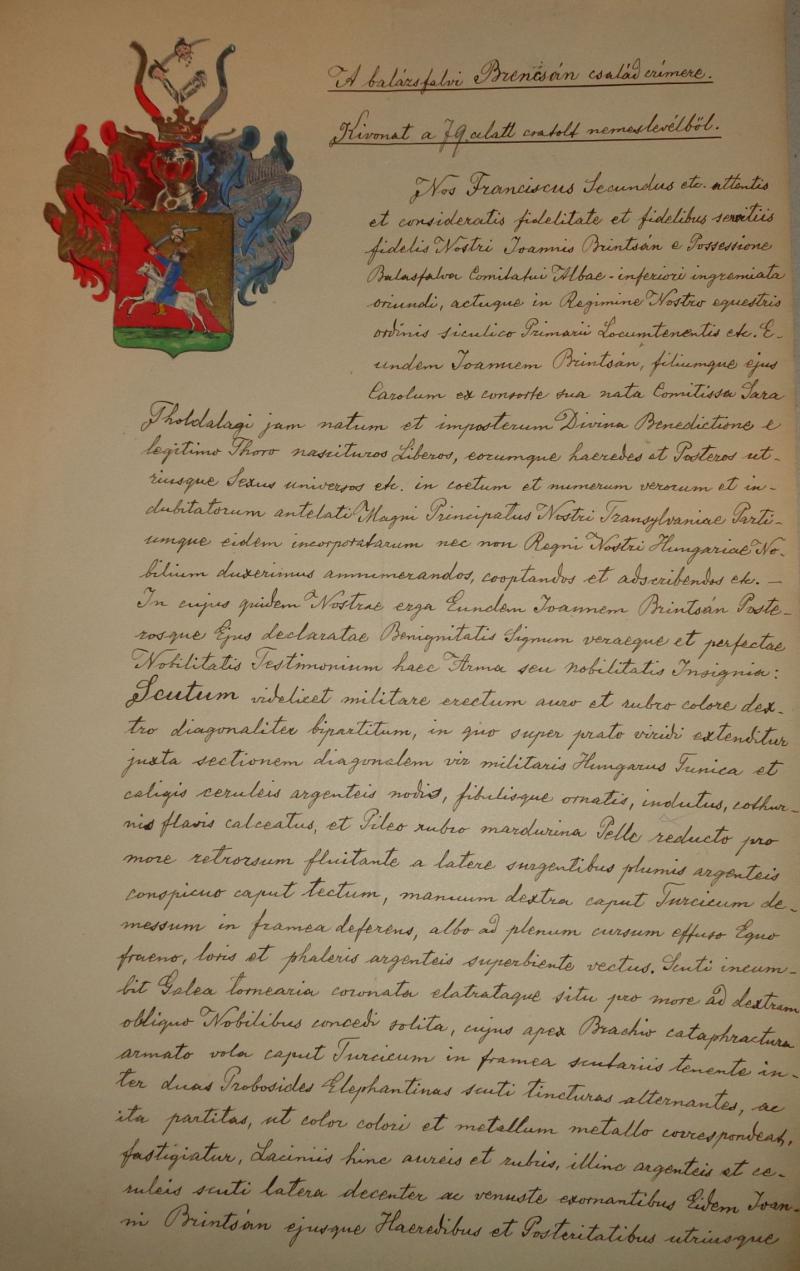 A balázsfalvi Brencsán család czímere.
Kivonat a 79. alatt csatolt nemeslevélből.
Nos Franciscus Secundus etc. attentis
et consideratis fidelitate et fidelibus servitiis
fidelis Nostri Joannis Brintsán e Possessione
Balasfalva Comitatui Albae-inferiori ingremiata
oriundi, actuque in Regimine Nostro equestris
ordinis siculico Primarii Locumtenentis etc. E-
undem Joannem Brintsán, filiumque ejus
Carolum ex consorte sua nata Comitissa Sara
Tholdalagi jam natum et imposterum Divina Benedictione e
legitimo Thoro nascituros Liberos, eorumque haeredes et Posteros ut-
riusque Sexus universos etc. in coetum et numerum verorum et in-
dubitatorum antelati Magni Principatus Nostri Transylvaniae Parti-
umque eidem incorporatarum nec non Regni Nostri Hungariae No-
bilium duxerimus annumerandos, cooptandos et adscribendos etc. —
In cujus quidem Nostrae erga Eundem Joannem Brintsán Poste-
rosque Ejus declaratae Benignitatis Signum veraeque et perfectae
Nobilitatis Testimonium haec Arma seu nobilitatis Insignia:
Scutum videlicet militare erectum auro et rubro colore dex-
tro diagonaliter bipartitum, in quo super prato viridi extenditur
juxta sectionem diagonalem vir militaris Hungarus Tunica et
caligis ceruleis argenteis nodis, fibulisque ornatis, indutus, cothur-
nis flavis calceatus, et Pileo rubro mardurina Pelle reducto pro
more retrorsum fluitante a latere surgentibus plumis argenteis
conspicuo caput tectum, manuum dextra caput Turcicum de-
messum in framea deferens, albo ad plenum cursum effuso Equo
fraeno, loris et phaleris argenteis superbiente vectus. Scuti incum-
bit Galea tornearia coronata clatrataque situ pro more ad dextram
obliquo Nobilibus concedi solita, cujus apex Brachio cataphractura
armato vola caput Turcicum in framea scutariis tenente in-
ter duas Probosides Elephantinas scuti tincturas alternantes, ac
ita partitas, ut color colori et metallum metallo correspondeat,
fastigiatur, Laciniis hinc aureis et rubris, illinc argenteis et ce-
ruleis scuti latera decenter ac venuste exornantibus Eidem Joan-
ni Brintsán ejusque Haeredibus et Posteritatibus utriusque